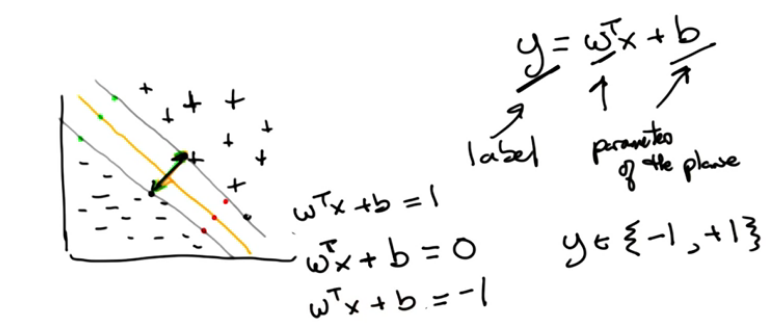 y = wᵀx + b
label
parameters
of the plane
wᵀx + b = 1
wᵀx + b = 0
wᵀx + b = -1
y ∈ {-1, +1}